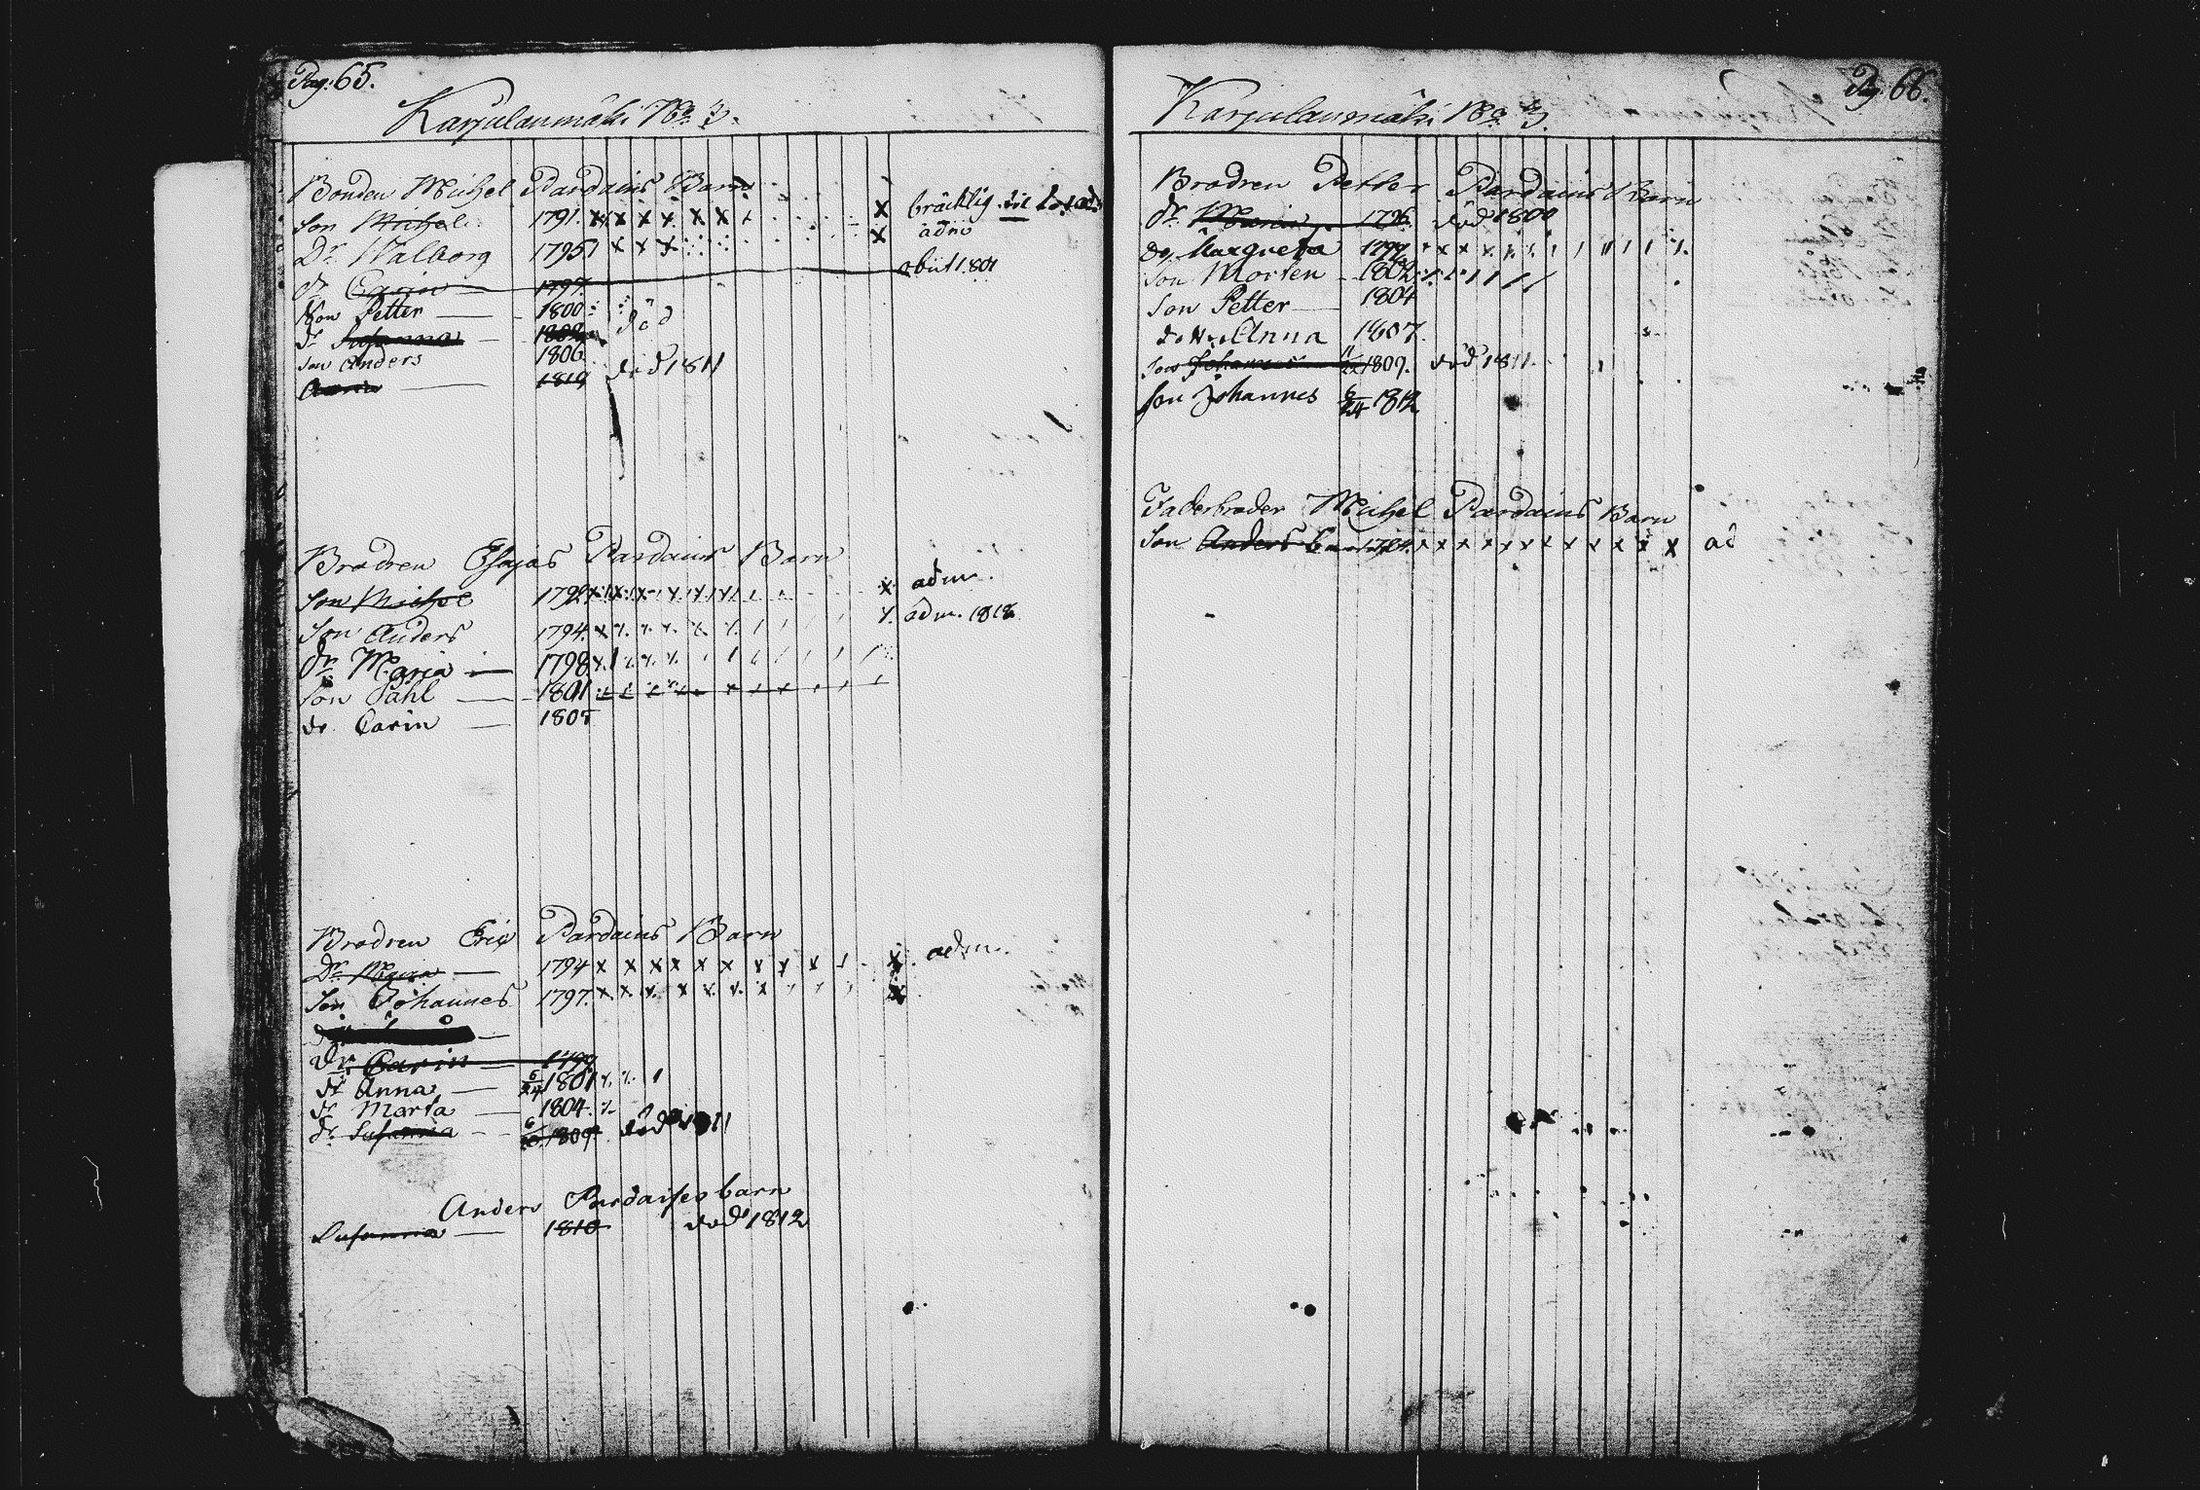 Pag. 65.
Karjulanmäki No 3.
Bonden Michel Pardains Barn
Son Michel 1791. x x x x x x x bräcklig til
Dr. Walborg 1795 x x x x adm
dr Carin 1797. obiit 1801
Son Petter 1800 död
dr Susanna 1802
son Anders 1806
Anna 1810 död 1811
Brodren Esajas Pardains Barn
Son Michel 1792 x adm.
Son Anders 1794 adm. 1818
dr Maria 1798
Son Påhl 1801
dr Carin 1805
Brodren Eric Pardains Barn
Dr. Maria 1794 x x x x x x x x x x adm.
Son Johannes 1797. x x x x x x x x
dr Carin 1799
dr Anna 6/24 1801
dr Marta 1804
dr Susanna 1809 död 1811
Anders Pardaises barn
Susanna 1810 död 1812
Pag. 66.
Karjulanmäki No 3.
Brodren Petter Pardains Barn
dr. Maria 1796 död 1800
do. Margueta 1799
Son Morten 1802
Son Petter 1804
dottr. Anna 1807.
Son Johannes 11/22 1809. död 1811.
Son Johannes 6/24 1812
Faderbroder Michel Pardains Barn
Son Anders 1784. x x x x x x x x x x x x ad